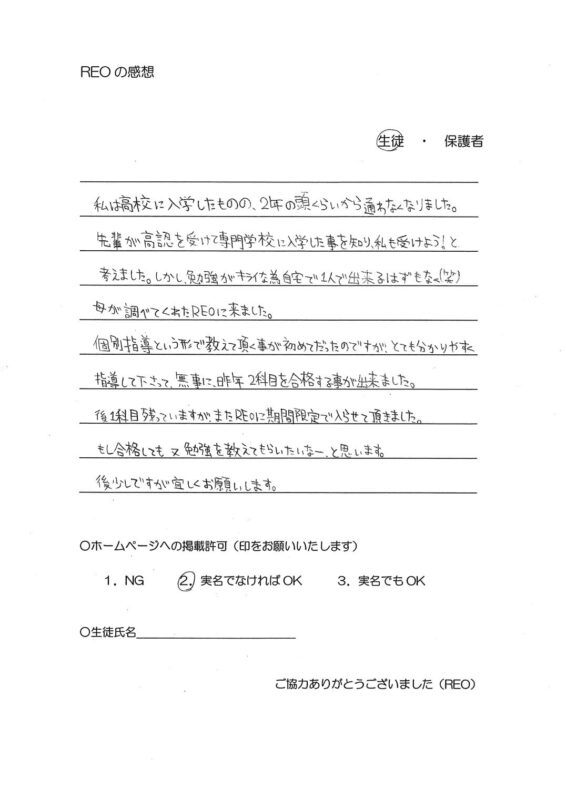 REOの感想
生徒 ・ 保護者
私は高校に入学したものの、2年の頭くらいから通わなくなりました。
先輩が高認を受けて専門学校に入学した事を知り、私も受けよう!と
考えました。しかし、勉強がキライな為自宅で1人で出来るはずもなく(笑)
母が調べてくれたREOに来ました。
個別指導という形で教えて頂く事が初めてだったのですが、とても分かりやすく
指導して下さって、無事に、昨年2科目を合格する事が出来ました。
後1科目残っていますが、またREOに期間限定で入らせて頂きました。
もし合格しても又勉強を教えてもらいたいなー、と思います。
後少しですが宜しくお願いします。
〇ホームページへの掲載許可（印をお願いいたします）
1．NG 2．実名でなければOK 3．実名でもOK
〇生徒氏名
ご協力ありがとうございました（REO）